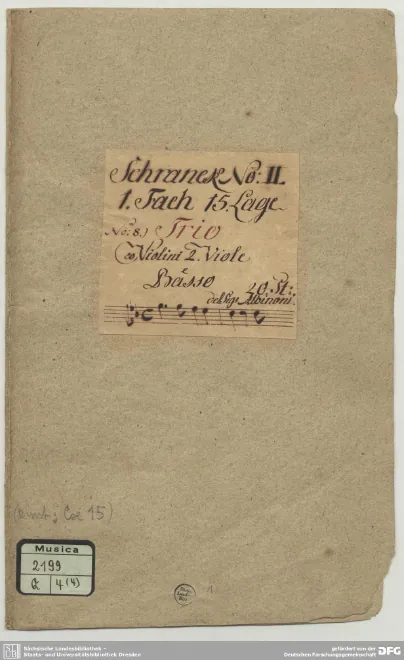 Schranck No: II.
1. Fach 15. Lage
No: 8.) Trio
co Violini 2. Viole
Basso
20. St:
del Sigr Albinoni.
15)
Musica
2199
Q 4 (4)
1
SLUB
Sächsische Landesbibliothek –
Staats- und Universitätsbibliothek Dresden
gefördert von der
Deutschen Forschungsgemeinschaft
DFG